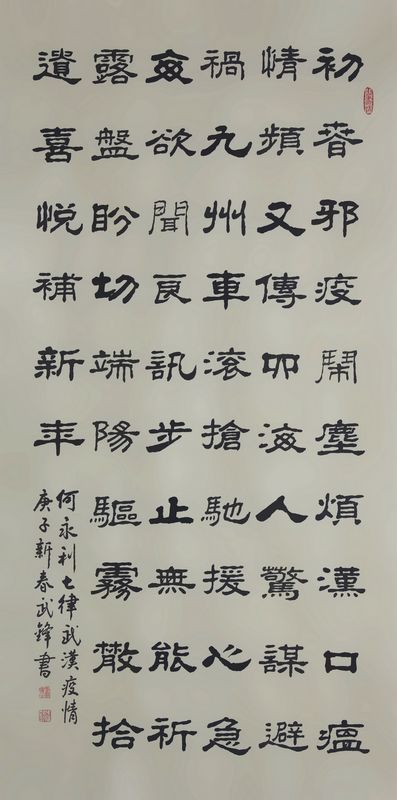 初春邪疫鬧塵煩漢口瘟
情頻又傳四海人驚謀避
禍九州車滾搶馳援心急
每欲聞良訊步止無能祈
露盤盼切端陽驅霧散拾
遺喜悅補新年
何永利七律武漢疫情
庚子新春武鋒書